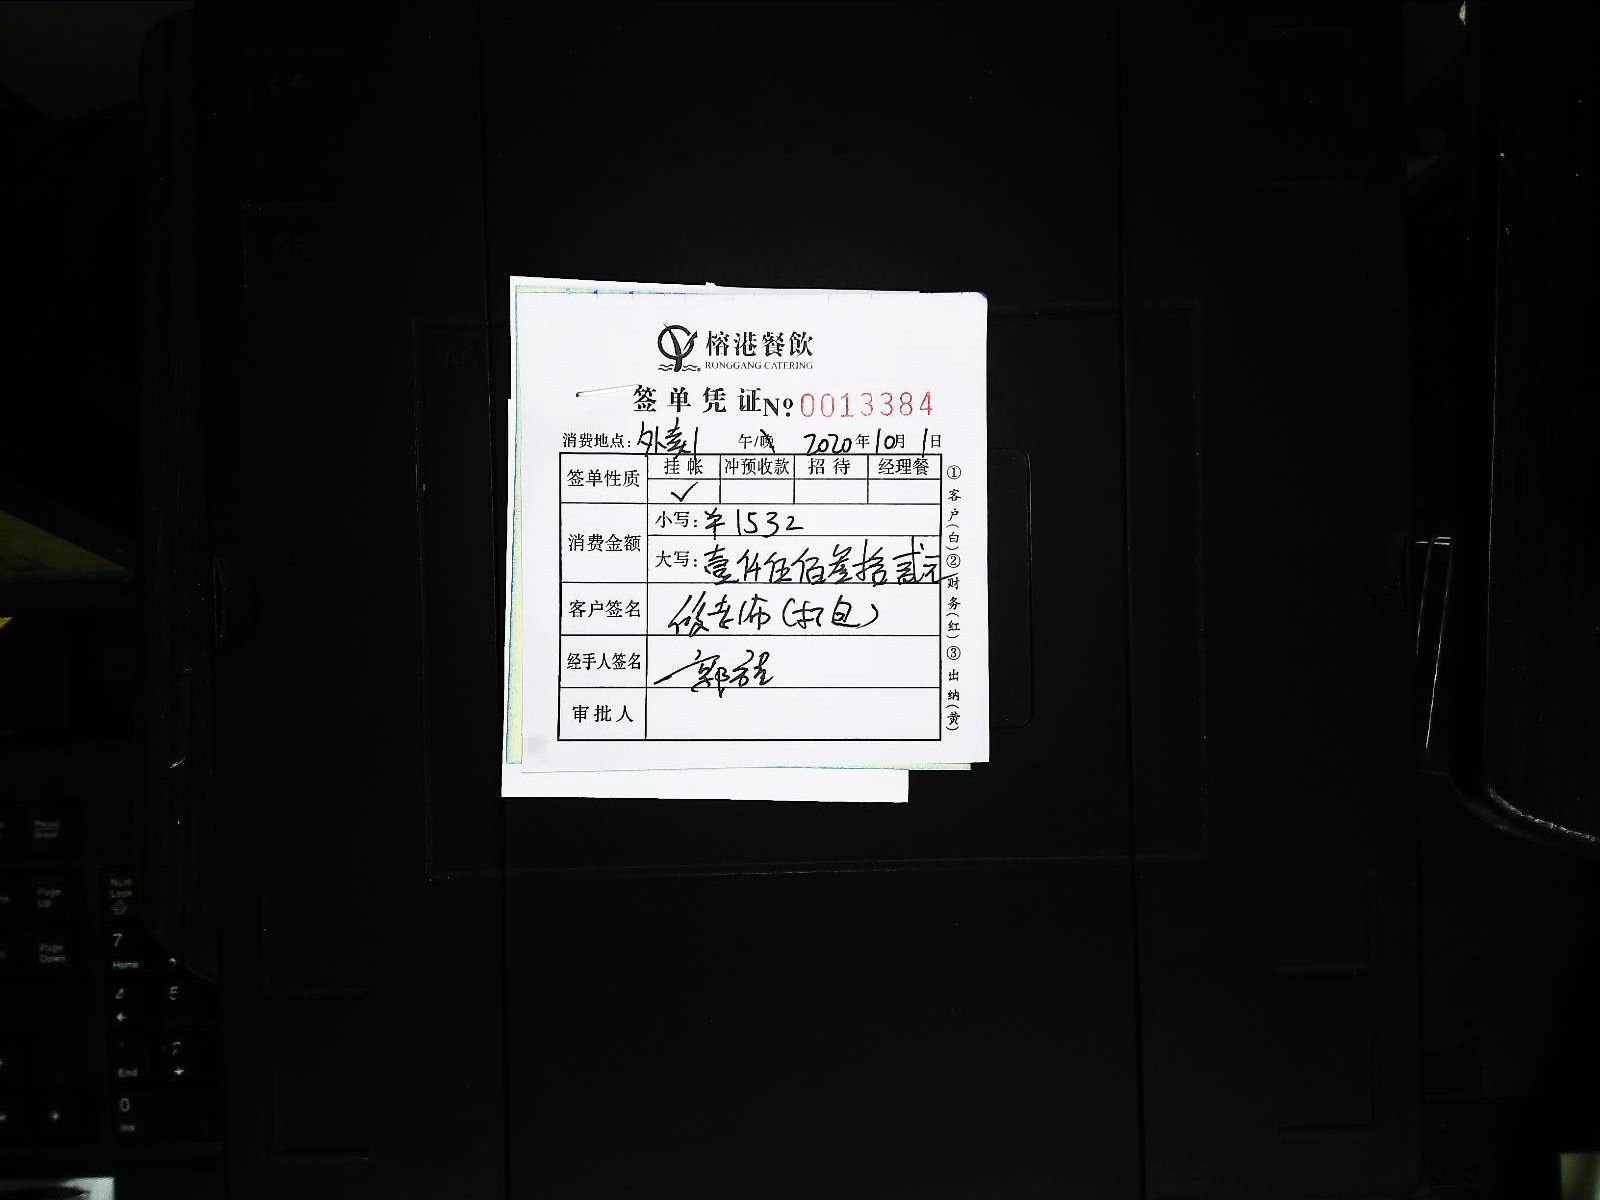 榕港餐飲
RONGGANG CATERING
签单凭证 № 0013384
消费地点: 外卖1 午/晚 2020年10月1日
签单性质 挂帐 冲预收款 招待 经理餐
✓
消费金额 小写: ¥1532
大写: 壹仟伍佰叁拾贰元
客户签名 (打包)
经手人签名 郭
审批人
①客户(白)②财务(红)③出纳(黄)
Num Lock
Page Up
Page Down
7
Home
4
5
End
0
Ins